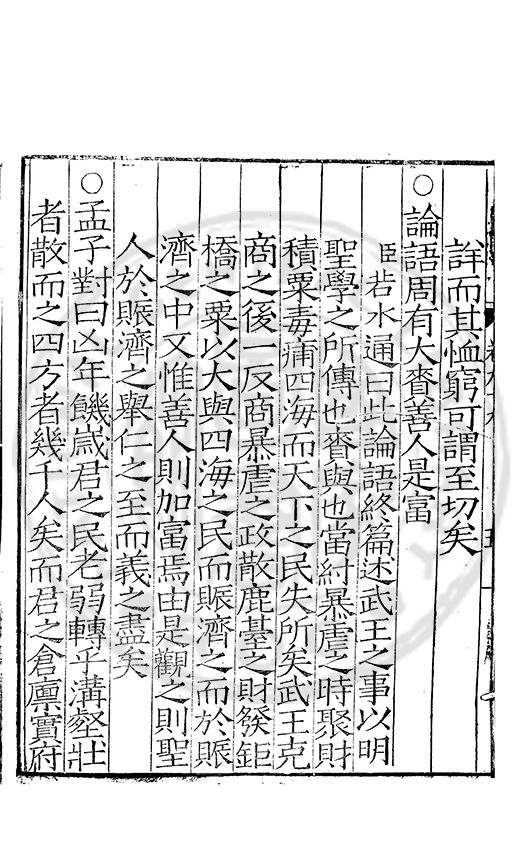 詳而其恤窮可謂至切矣
○論語周有大賚善人是富
臣若水通曰此論語終篇述武王之事以明
聖學之所傳也賚與也當紂暴虐之時聚財
積粟毒痡四海而天下之民失所矣武王克
商之後一反商暴虐之政散鹿臺之財發鉅
橋之粟以大與四海之民而賑濟之而於賑
濟之中又惟善人則加富焉由是觀之則聖
人於賑濟之舉仁之至而義之盡矣
○孟子對曰凶年饑歲君之民老弱轉乎溝壑壯
者散而之四方者幾千人矣而君之倉廩實府